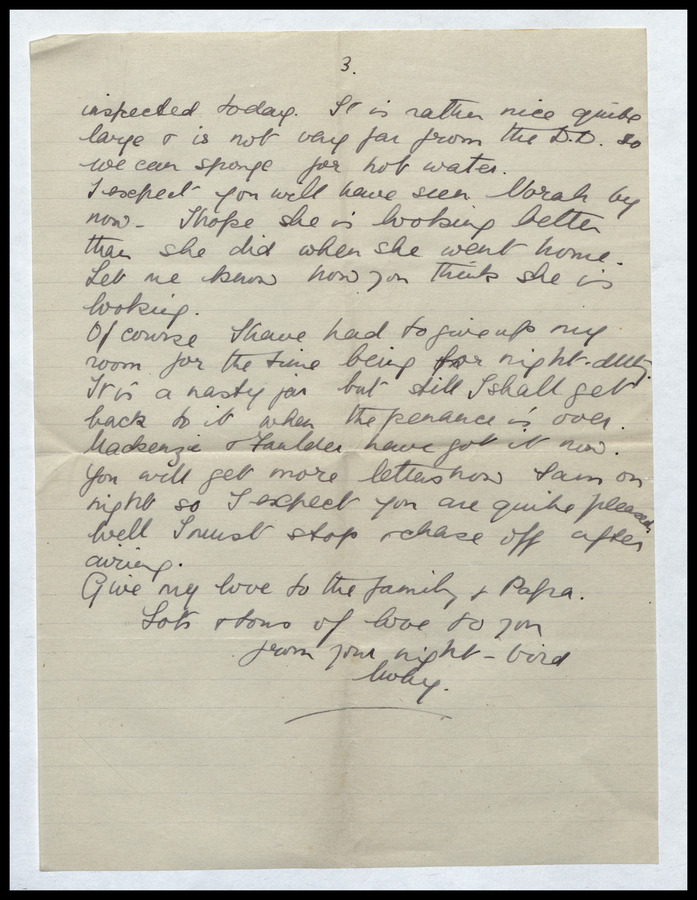 3.
inspected today. It is rather nice quite
large & is not very far from the D.D. so
we can sponge for hot water.
I expect you will have seen Norah by
now - I hope she is looking better
than she did when she went home.
Let me know how you think she is
looking.
Of course I have had to give up my
room for the time being for night-duty
It is a nasty jar but still I shall get
back to it when the penance is over.
Mackenzie & Faulder have got it now.
You will get more letters now I am on
night so I expect you are quite pleased
Well I must stop & chase off after
airing.
Give my love to the family & Papa.
Lots & tons of love to you
from your night-bird